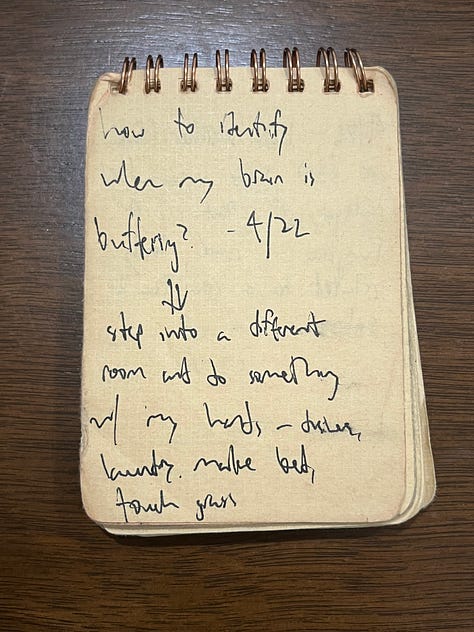 how to identify
when my brain is
buffering? - 4/22
step into a different
room and do something
w/ my hands - dishes,
laundry, make bed,
touch grass